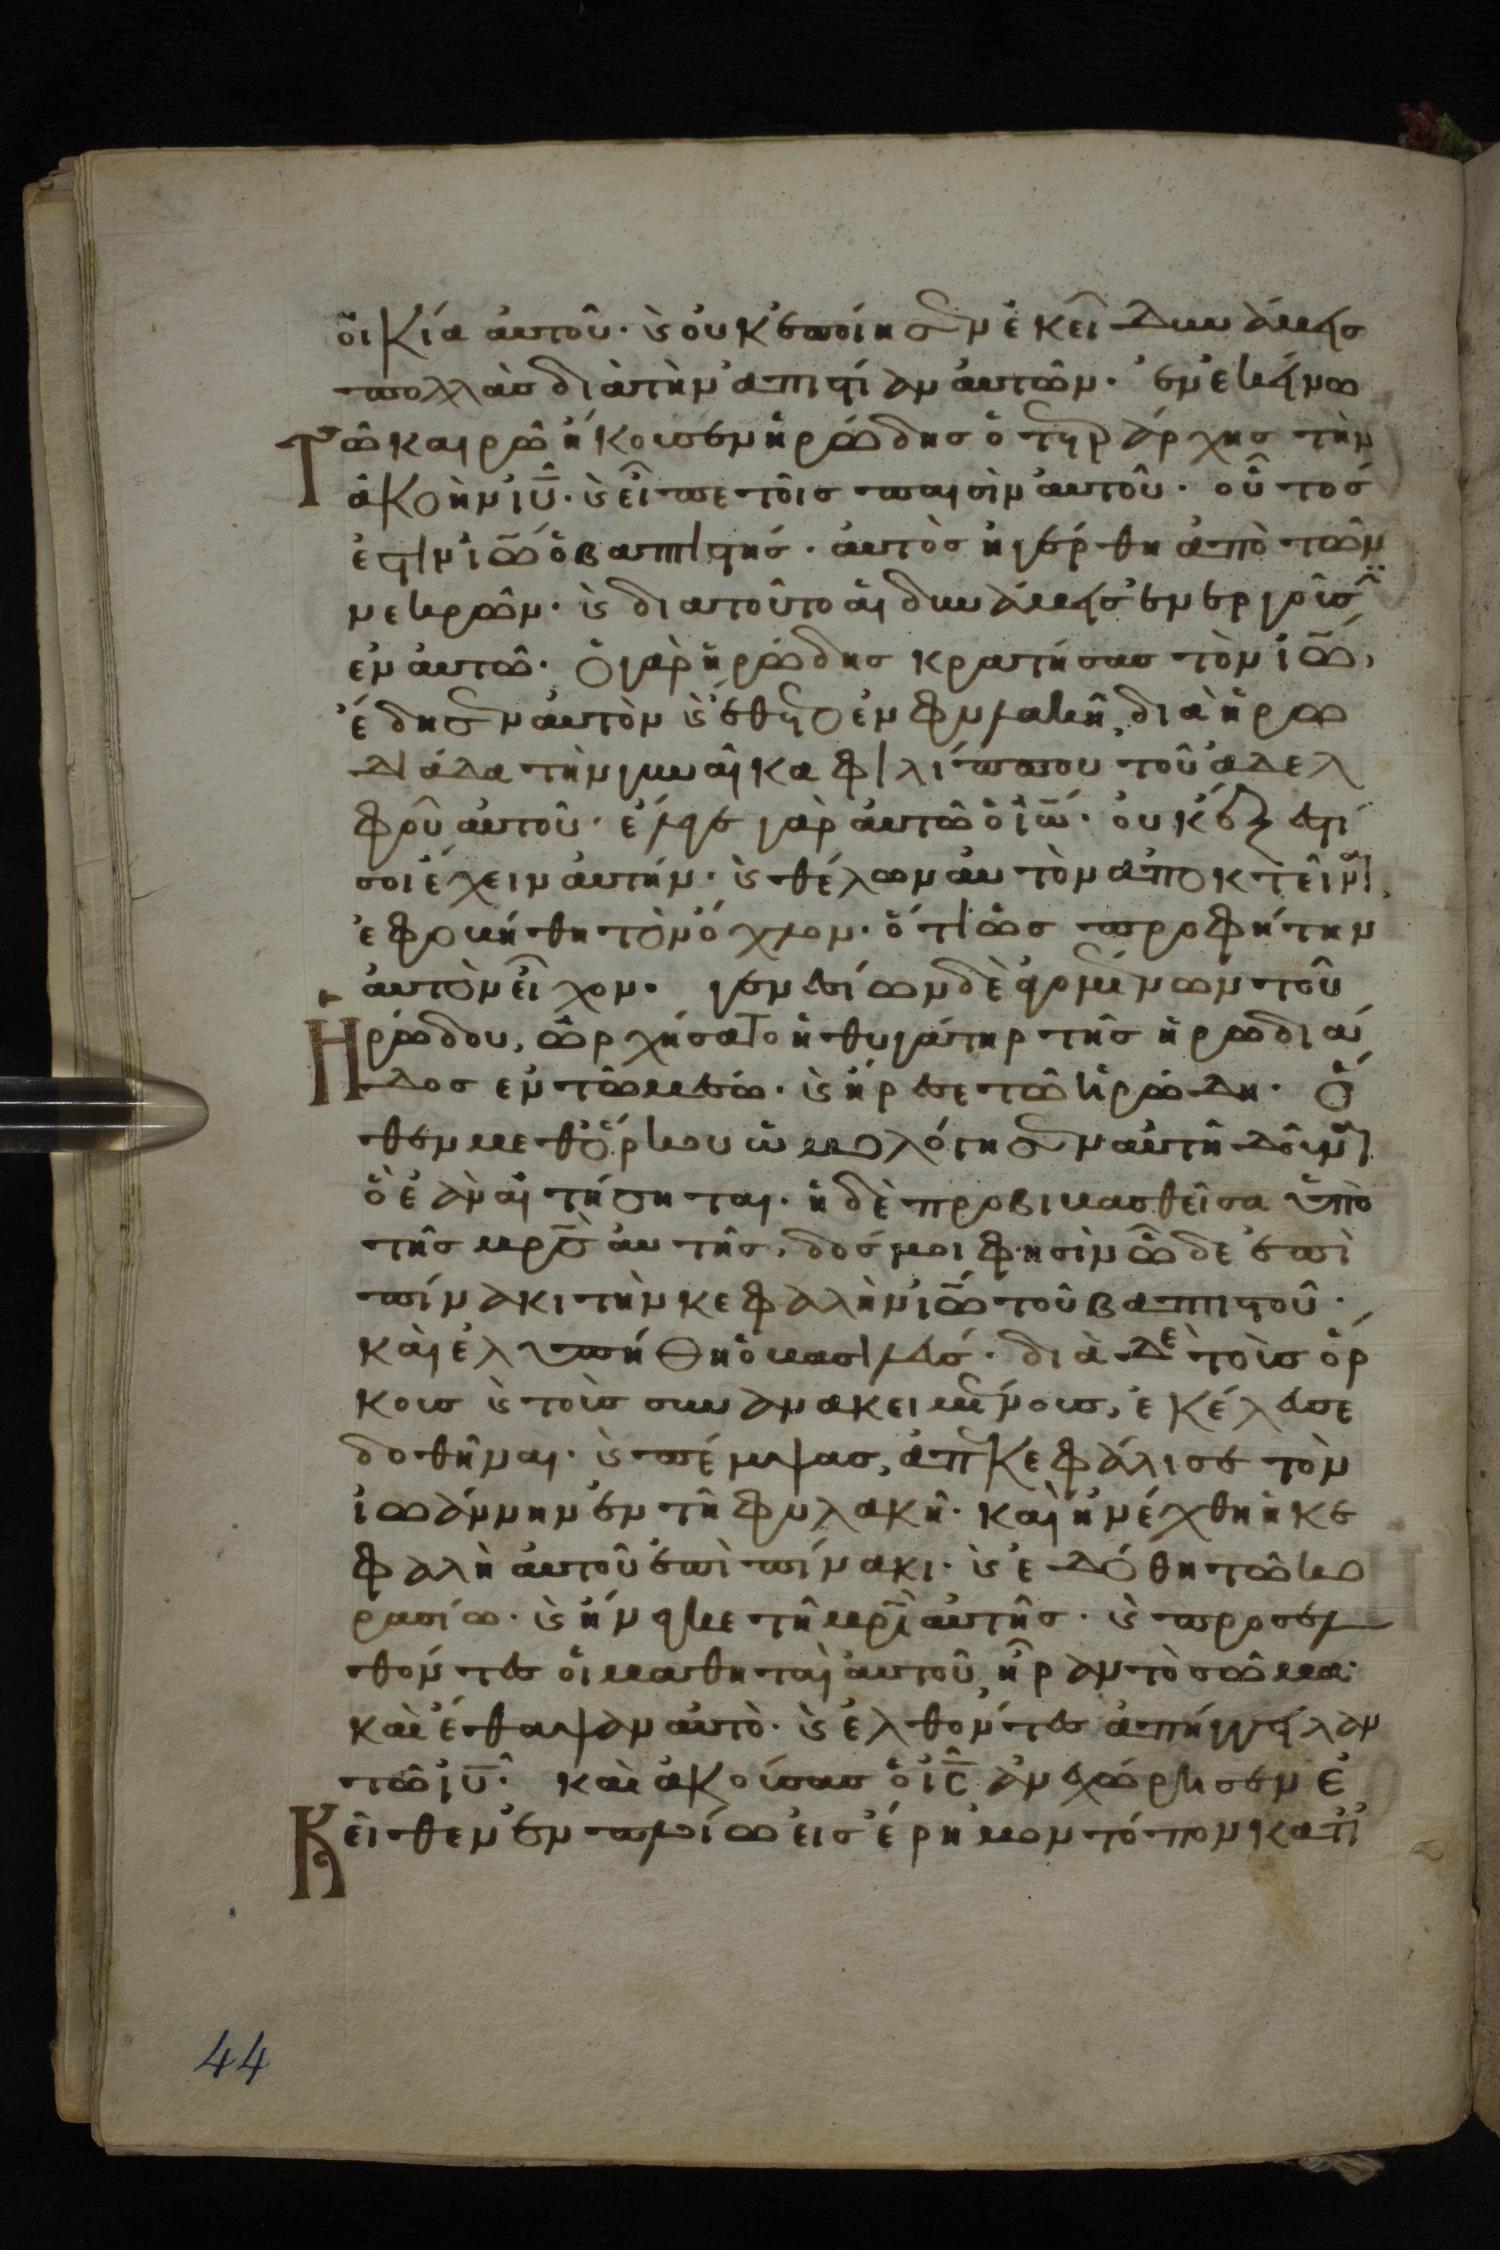 οἰκία αὐτοῦ· κ οὐκ ἐποίησεν ἐκεῖ δυνάμεις
πολλὰς διὰ τὴν ἀπιστίαν αὐτῶν· ἐν ἐκείνω
Τῶ καιρῶ ἤκουσεν ἡρώδης ὁ τετράρχης τὴν
ἀκοὴν ιῦ· κ εἶπε τοῖς παισὶν αὐτοῦ· οὗτός
ἐστιν ἰω ὁ βαπτιστής· αὐτὸς ἠγέρθη ἀπὸ τῶν
νεκρῶν· κ διατοῦτο αἱ δυνάμεις ἐνεργοῦσιν
ἐν αὐτῶ· ὁ γὰρ ἡρώδης κρατήσας τὸν ἰω,
ἔδησεν αὐτὸν κ ἔθετο ἐν φυλακῆ, διὰ ἡρω
διάδα τὴν γυναῖκα φιλίππου τοῦ ἀδελ
φοῦ αὐτοῦ· ἔλεγε γὰρ αὐτῶ ὁ ἰω· οὐκ ἔξεστί
σοι ἔχειν αὐτήν· κ θέλων αὐτὸν ἀποκτεῖναι,
ἐφοβήθη τὸν ὄχλον· ὅτι ὡς προφήτην
αὐτὸν εἶχον· γενεσίων δὲ ἀγομένων τοῦ
Ἡρώδου, ὠρχήσατο ἡ θυγάτηρ τῆς ἡρωδιά
δος ἐν τῶ μέσω· κ ἤρεσε τῶ ἡρώδη· ὅ
θεν μεθ' ὅρκου ὡμολόγησεν αὐτῆ δοῦναι
ὃ ἐὰν αἰτήσηται· ἡ δὲ προβιβασθεῖσα ὑπὸ
τῆς μρσ αὐτῆς, δός μοι φησὶν ὧδε ἐπὶ
πίνακι τὴν κεφαλὴν ἰω τοῦ βαπτιστοῦ·
καὶ ἐλυπήθη ὁ βασιλεύς· διὰ δὲ τοὺς ὅρ
κους κ τοὺς συνανακειμένους, ἐκέλευσε
δοθῆναι· κ πέμψας, ἀπεκεφάλισε τὸν
ἰωάννην ἐν τῆ φυλακῆ· καὶ ἠνέχθη ἡ κε
φαλὴ αὐτοῦ ἐπὶ πίνακι· κ ἐδόθη τῶ κο
ρασίω· κ ἤνεγκε τῆ μρὶ αὐτῆς· κ προσελ
θόντες οἱ μαθηταὶ αὐτοῦ, ἦραν τὸ σῶμα·
καὶ ἔθαψαν αὐτὸ· κ ἐλθόντες ἀπήγγειλαν
τῶ ιῦ· καὶ ἀκούσας ὁ ις ἀνεχώρησεν ἐ
Κεῖθεν ἐν πλοίω εἰς ἔρημον τόπον κατ' ἰ
44